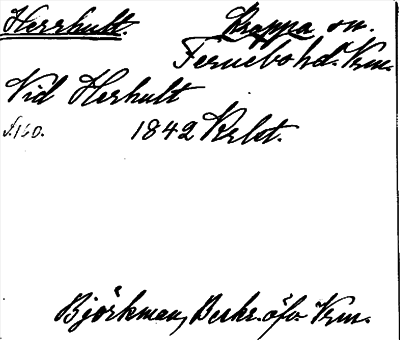 Herrhult. Kroppa sn.
Fernebo hd. Vrm.
Vid Herhult
s. 160. 1842 Krlst.
Björkman, Beskr. öfv. Vrm.